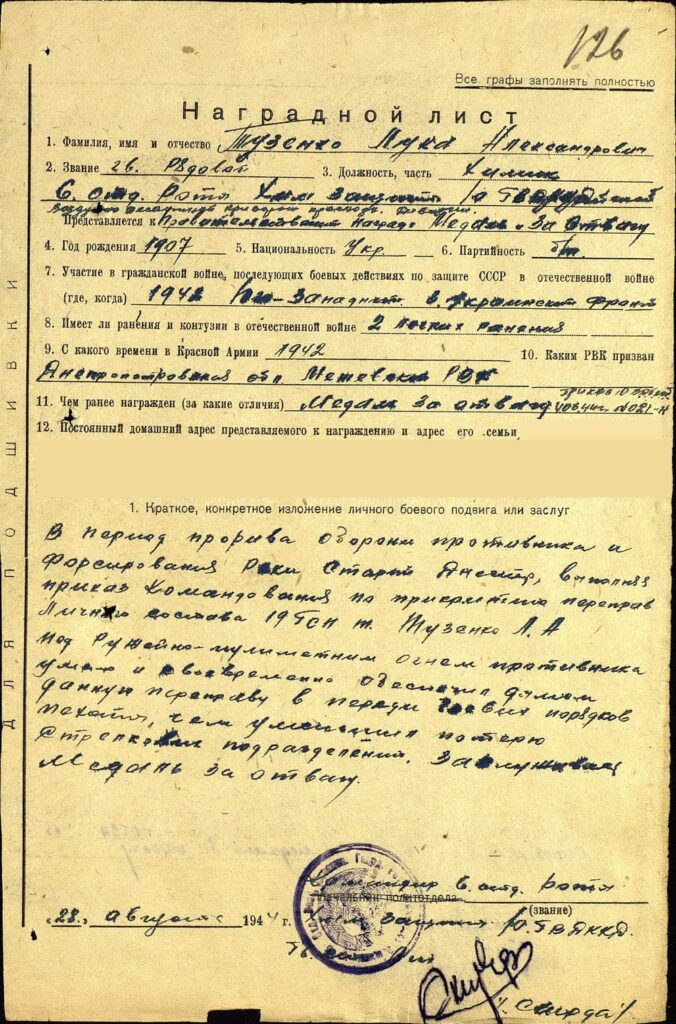 126
Все графы заполнять полностью
Наградной лист
1. Фамилия, имя и отчество Тузенко Лука Александрович
2. Звание гв. Рядовой 3. Должность, часть Химик
6 отд. Рота Хим защиты 10 Гв
Представляется к Правительственной награде Медаль "За Отвагу
4. Год рождения 1907 5. Национальность Укр. 6. Партийность б/п.
7. Участие в гражданской войне, последующих боевых действиях по защите СССР в отечественной войне
(где, когда) 1942 Юго-Западный. 3. Украинский фронт
8. Имеет ли ранения и контузии в отечественной войне 2 легких ранения
9. С какого времени в Красной Армии 1942 10. Каким РВК призван
Днепропетровская обл Межевской РВК
11. Чем ранее награжден (за какие отличия) Медаль За отвагу приказ 10 №021-н
12. Постоянный домашний адрес представляемого к награждению и адрес его семьи
1. Краткое, конкретное изложение личного боевого подвига или заслуг
В период прорыва обороны противника и
форсирования Реки Старый Днестр, выполняя
приказ Командования по прикрытию переправ
Личного состава 19 ГСП т. Тузенко Л. А
под Ружейно-пулиметным огнем противника
умело и своевременно обеспечил дымом
данную переправу в период боевых порядков
пехоты, чем уменьшил потерю
Стрелковых подразделений. Заслуживает
Медаль за отвагу.
Командир 6. отд. Роты
Начальник политотдела
(звание)
Хим защиты 10. Гв ВДККД.
"28." августа 1944 г.
Гв.
/Скирда/
ДЛЯ ПОДШИВКИ